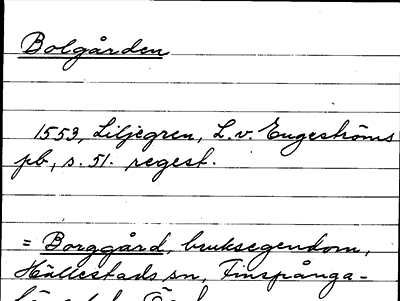 Bolgården
1553, Liljegren, L. v. Engeströms
pb, s. 51. regest.
= Borggård, bruksegendom,
Hällestads sn, Finspånga-